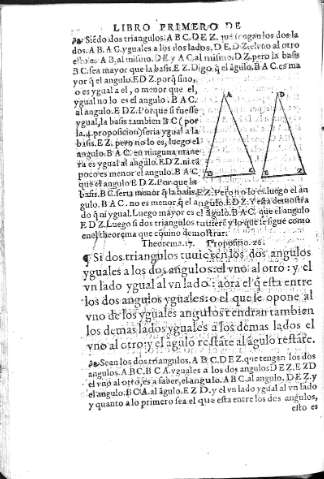 LIBRO PRIMERO DE
Siẽdo dos triangulos: A B C. D E Z. que tengan los dos la
dos. A B. A C. yguales a los dos lados. D E. D Z. el vno al otro
es a saber. A B, al mismo. D E. y A C, al mismo. D Z. pero la basis
B C. sea mayor que la basis. E Z. Digo. q̃ el ãgulo. B A C. es ma
yor q̃ el angulo. E D Z. porq̃ sino,
o es ygual a el, o menor que el,
ygual no lo es el angulo. B A C.
al angulo. E D Z. Porque si fuesse
ygual, la basis tambien B C (por
la. 4. proposicion) seria ygual a la
basis. E Z. pero no lo es, luego el
angulo. B A C. en ninguna mane
ra es ygual al angulo. E D Z. ni tã
poco es menor el angulo. B A C.
que el angulo E D Z. Porque la
basis. B C. seria menor q̃ la basis. E Z. Pero no lo es, luego el an
gulo. B A C. no es menor q̃ el angulo. E D Z. Y esta demostra
do q̃ ni ygual. Luego mayor es el ãgulo. B A C. que el angulo
E D Z. Luego si dos triangulos tuuierẽ y lo que se sigue como
en el theorema que cõuino demostrar.
Theorema. 17. Propositio. 26.
¶ Si dos triangulos tuuieren los dos angulos
yguales a los dos angulos: el vno al otro: y el
vn lado ygual al vn lado: aora el q̃ esta entre
los dos angulos yguales: o el que se opone al
vno de los yguales angulos tendran tambien
los demas lados yguales a los demas lados el
vno al otro: y el ãgulo restãte al ãgulo restãte.
Sean los dos triangulos. A B C. D E Z. que tengan los dos
angulos. A B C. B C A. yguales a los dos angulos D E Z. E Z D
el vno al otro, es a saber, el angulo. A B C. al angulo. D E Z. y
el angulo. B C A. al ãgulo. E Z D. y el vn lado ygual al vn lado
y quanto a lo primero sea el que esta entre los dos angulos,
esto es
A D
B C E Z